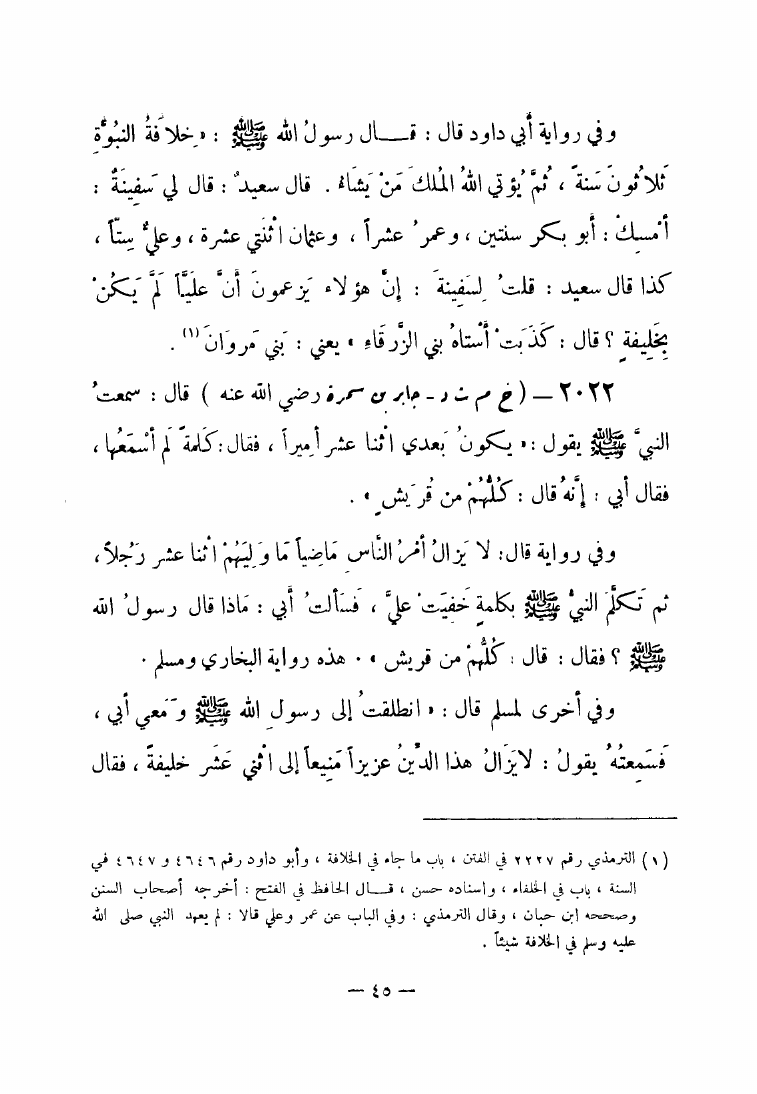 وفي رواية أبي داود قال : قـــال رسولُ الله ﷺ : « خِلافَةُ النبُوَّةِ
ثلاثُونَ سَنةً ، ثُمَّ يُؤتي اللهُ المُلكَ مَنْ يَشَاءُ . قال سعيدٌ : قال لي سَفِينَةُ :
أمْسِكْ : أبو بكر سنتين ، وعمرُ عشراً ، وعثمان اثنَتي عشرة ، وعليٌّ سِتّاً ،
كذا قال سعيد : قلتُ لِسَفِينةَ : إنَّ هؤلاء يَزعمونَ أنَّ عليّاً لَمْ يَكُنْ
بِخَلِيفةٍ ؟ قال : كَذَبَتْ أسْتاهُ بني الزَّرقَاءِ » يعني : بَني مَروَانَ (١) .
٢٠٢٢ – ( خ م ت د - جابر بن سمرة رضي الله عنه ) قال : سمعتُ
النبيَّ ﷺ يقول : « يكونُ بَعدي اثنا عشر أميراً ، فقال : كَلمةً لم أسْمَعْها ،
فقال أبي : إنَّهُ قال : كُلُّهُمْ من قُرَيشٍ » .
وفي رواية قال : لا يَزالُ أمْرُ النَّاسِ مَاضِياً مَا وَلِيَهُمْ اثنا عشر رَجُلاً ،
ثم تَكلَّمَ النبيُّ ﷺ بكلمةٍ خَفِيَتْ عليَّ ، فَسَألتُ أبي : مَاذا قال رسولُ الله
ﷺ ؟ فقال : قال : كُلُّهمْ من قريش » . هذه رواية البخاري ومسلم .
وفي أخرى لمسلم قال : « انطلقتُ إلى رسولِ الله ﷺ وَمَعي أبي ،
فَسَمِعتُهُ يقولُ : لايَزَالُ هذا الدِّينُ عزيزاً مَنِيعاً إلى اثْني عَشَر خليفةً ، فقال
(١) الترمذي رقم ٢٢٢٧ في الفتن ، باب ما جاء في الخلافة ، وأبو داود رقم ٤٦٤٦ و ٤٦٤٧ في
السنة ، باب في الخلفاء ، وإسناده حسن ، قـــال الحافظ في الفتح : أخرجه أصحاب السنن
وصححه ابن حبان ، وقال الترمذي : وفي الباب عن عمر وعلي قالا : لم يعهد النبي صلى الله
عليه وسلم في الخلافة شيئاً .
— ٤٥ —